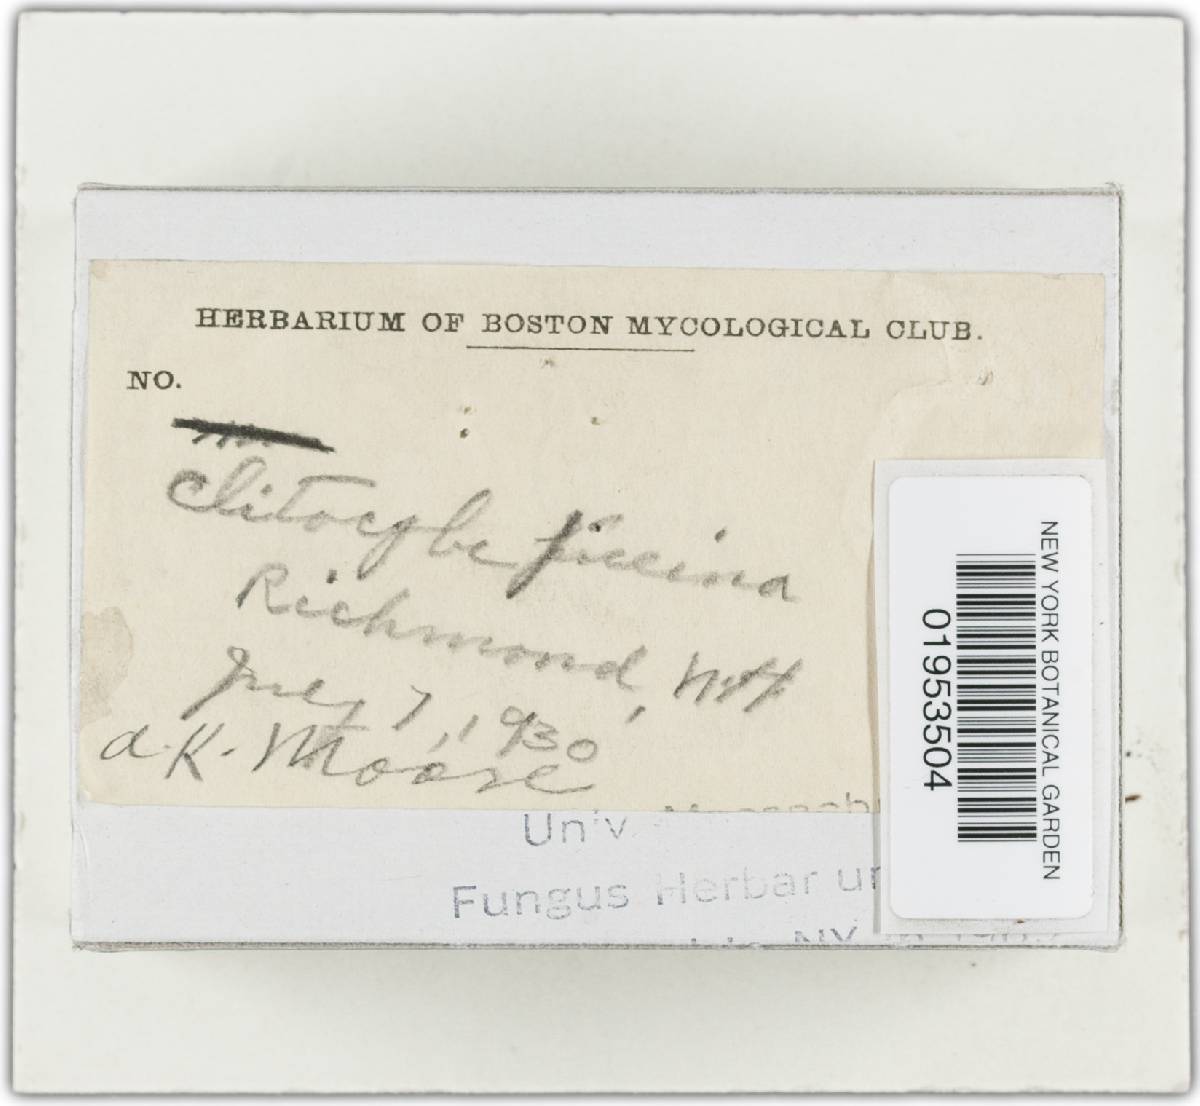 HERBARIUM OF BOSTON MYCOLOGICAL CLUB.
NO.
Clitocybe piceina
Richmond, N.H
July 7, 1930
A.K. Moore
Univ. Massach
Fungus Herbarium
NY
NEW YORK BOTANICAL GARDEN
01953504